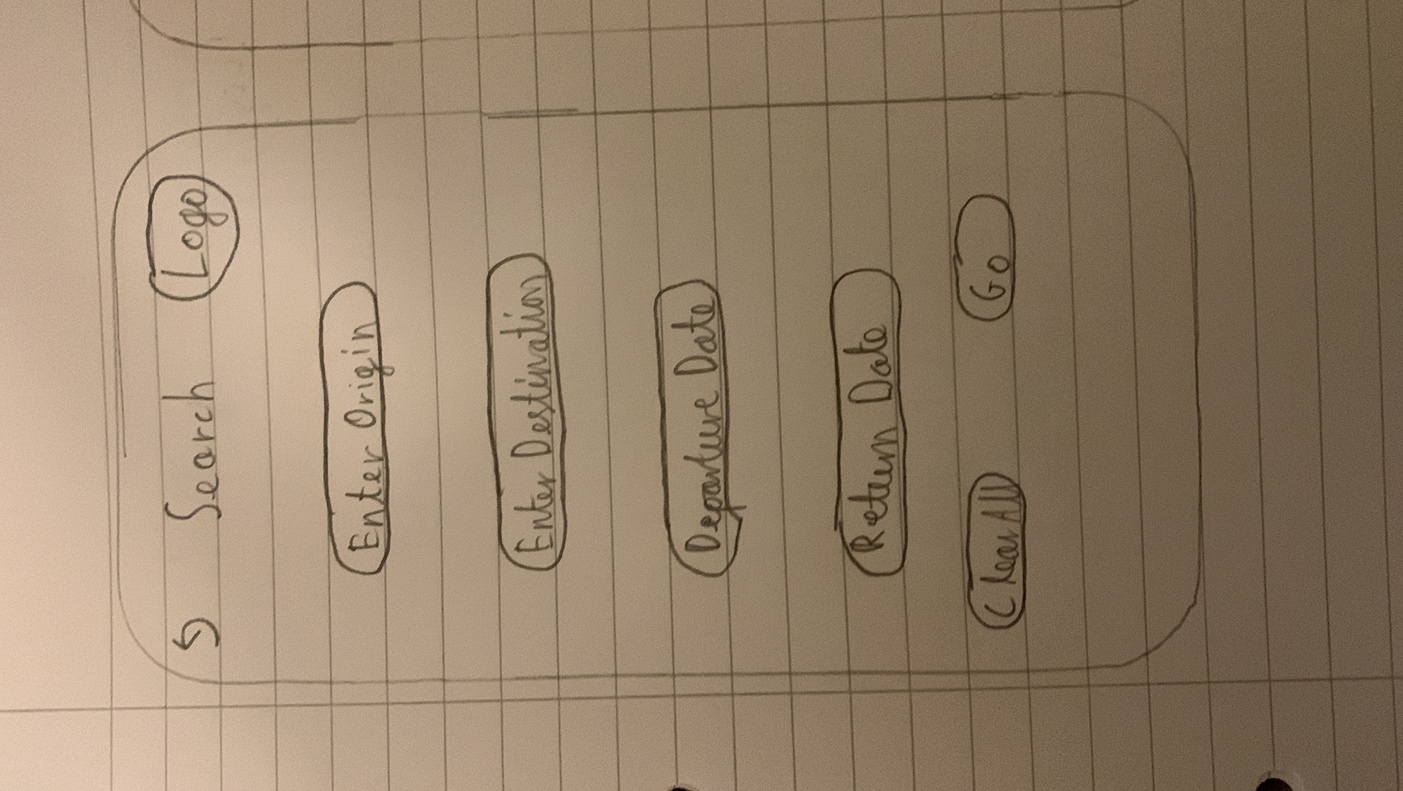 Search Logo
Enter Origin
Enter Destination
Departure Date
Return Date
Clear All Go